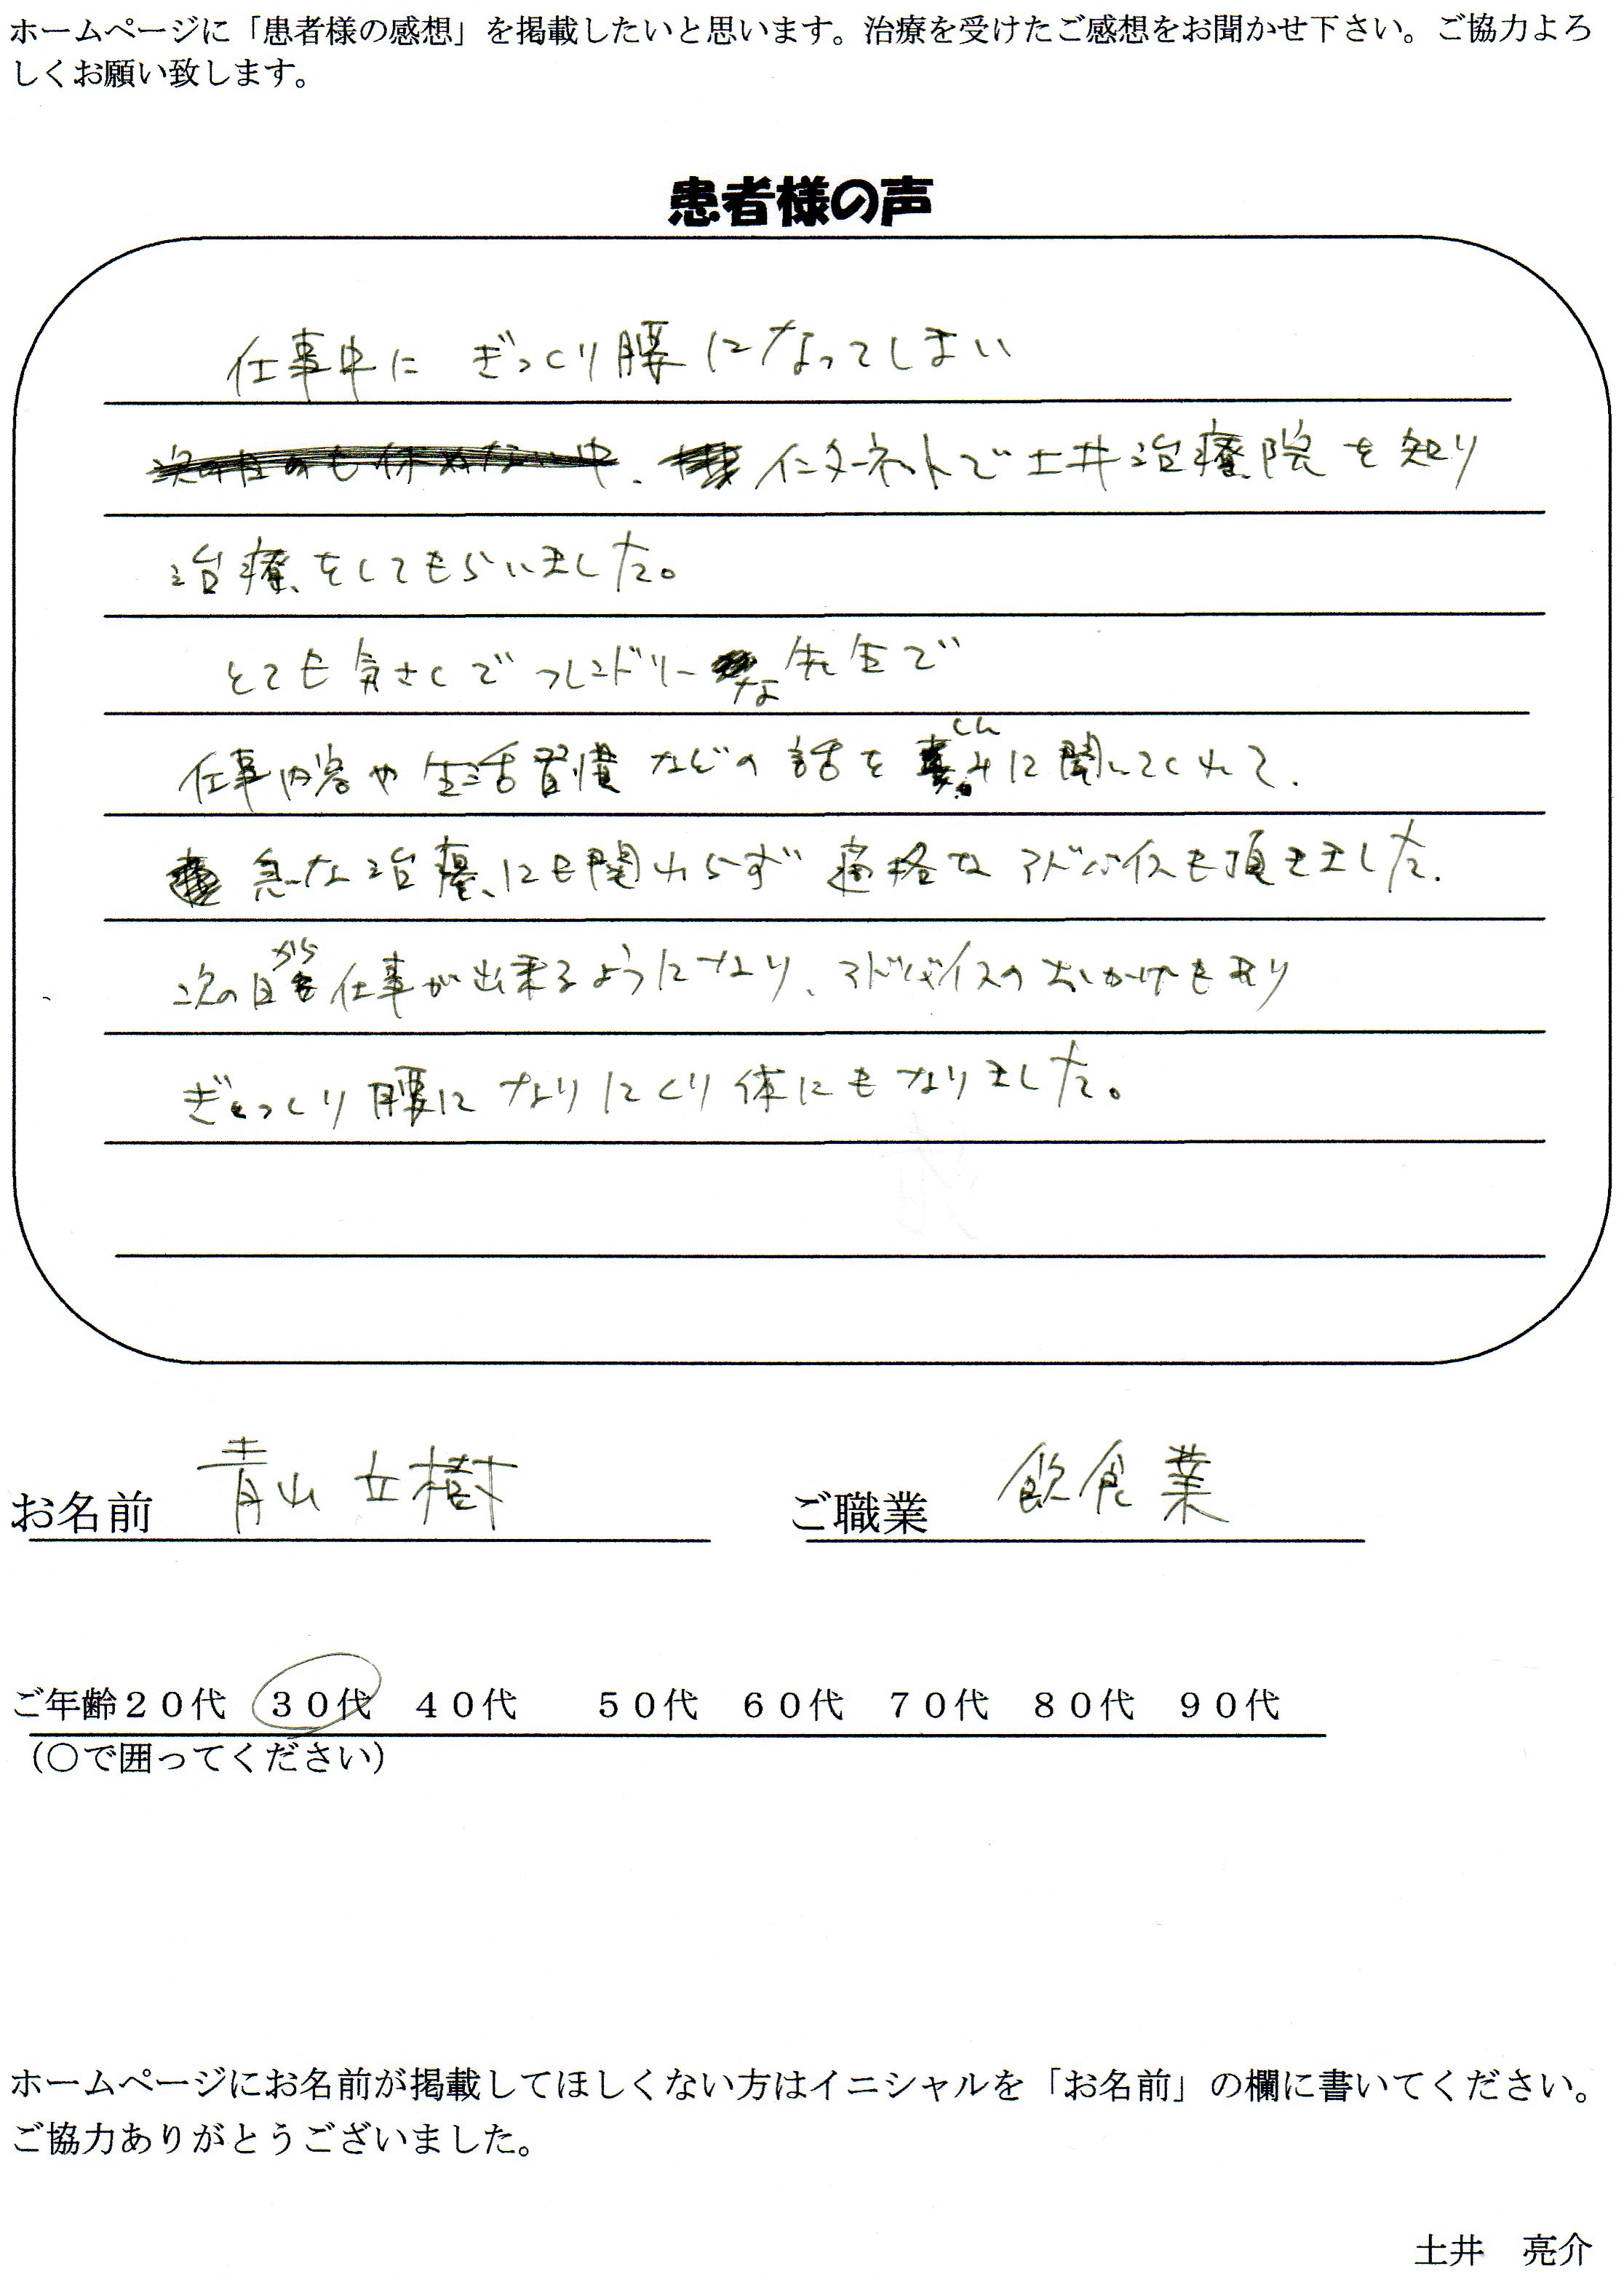 ホームページに「患者様の感想」を掲載したいと思います。治療を受けたご感想をお聞かせ下さい。ご協力よろ
しくお願い致します。
患者様の声
仕事中に ぎっくり腰になってしまい
インターネットで土井治療院を知り
治療をしてもらいました。
とても気さくでフレンドリーな先生で
仕事内容や生活習慣などの話を しんみに聞いてくれて、
急な治療にも関わらず 適格なアドバイスも頂きました。
次の日から仕事が出来るようになり、アドバイスのおかげもあり
ぎっくり腰になりにくい体にもなりました。
お名前 青山 立樹 ご職業 飲食業
ご年齢20代 30代 40代 50代 60代 70代 80代 90代
(○で囲ってください)
ホームページにお名前が掲載してほしくない方はイニシャルを「お名前」の欄に書いてください。
ご協力ありがとうございました。
土井 亮介